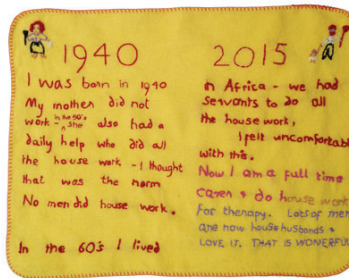 1940
I was born in 1940
My mother did not
work - in the 50's she also had a
daily help who did all
the house work - I thought
that was the norm
No men did house work.
In the 60's I lived
2015
in Africa - we had
servants to do all
the house work,
I felt uncomfortable
with this.
Now I am a full time
carer & do house work
For therapy. Lots of men
are now house husbands &
LOVE IT. THAT IS WONERFUL